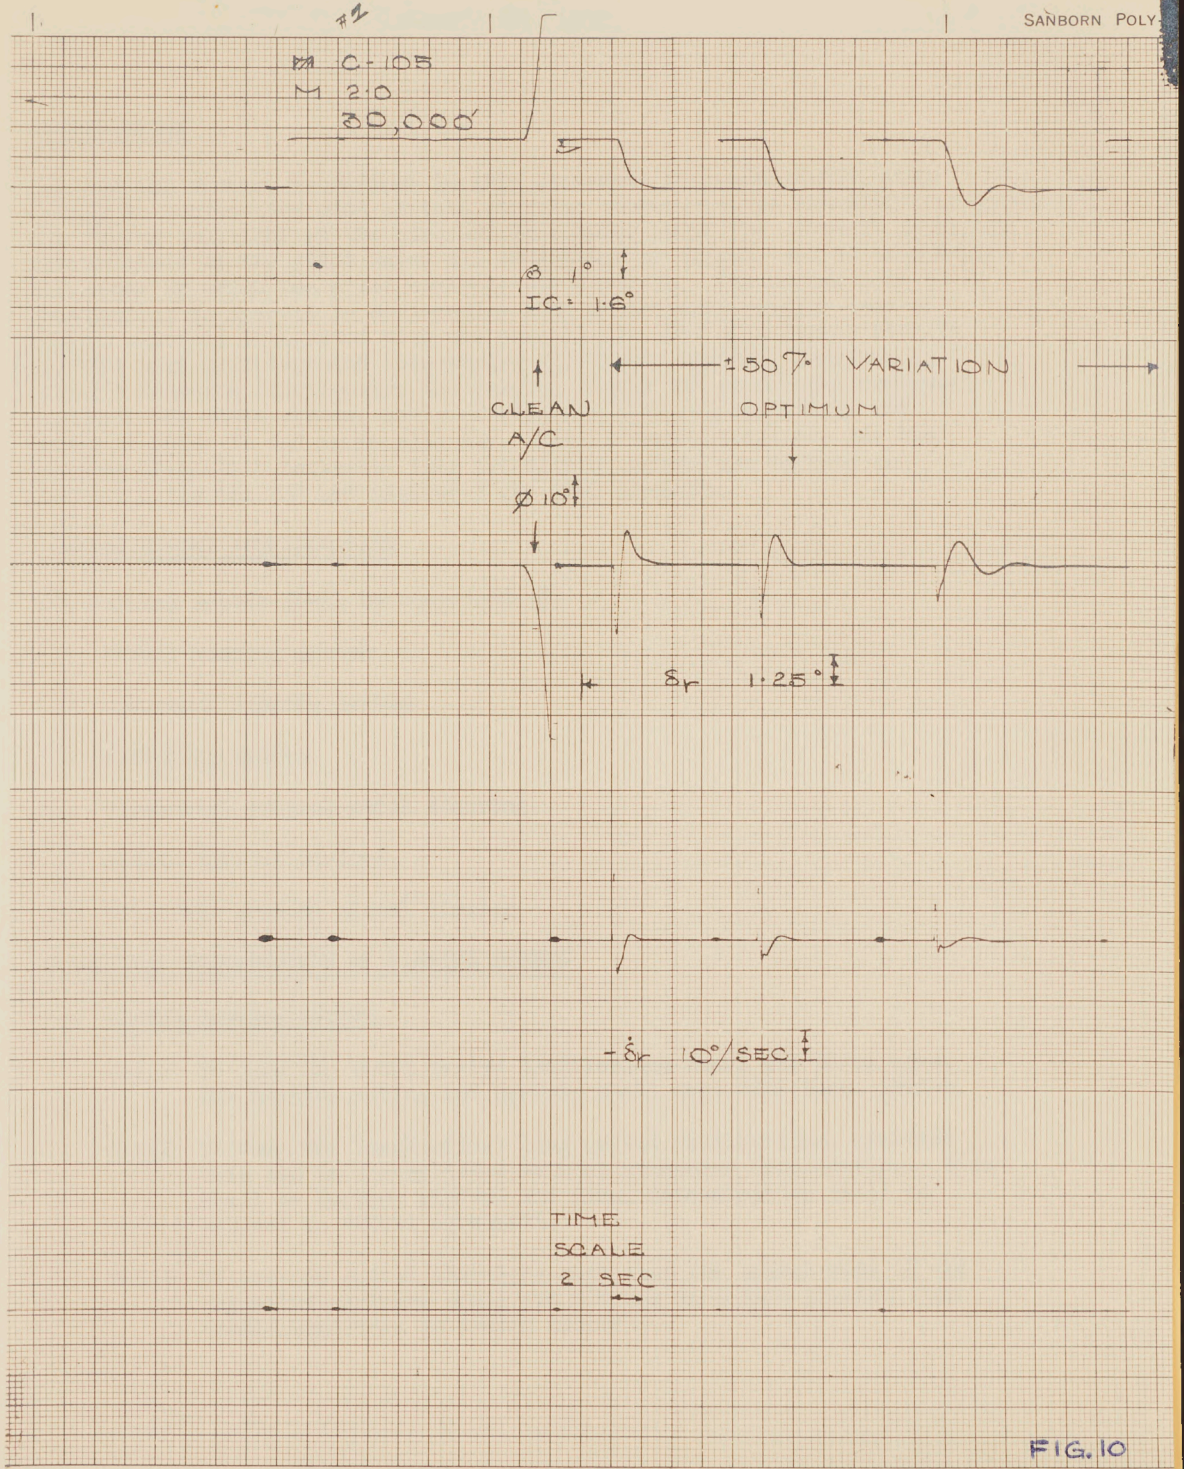 #2
SANBORN POLY-
C-105
M 2.0
30,000'
β 1°
IC = 1.6°
±50% VARIATION
CLEAN
A/C
OPTIMUM
Ø 10°
δr 1.25°
-δ̇r 10°/SEC
TIME
SCALE
2 SEC
FIG.10